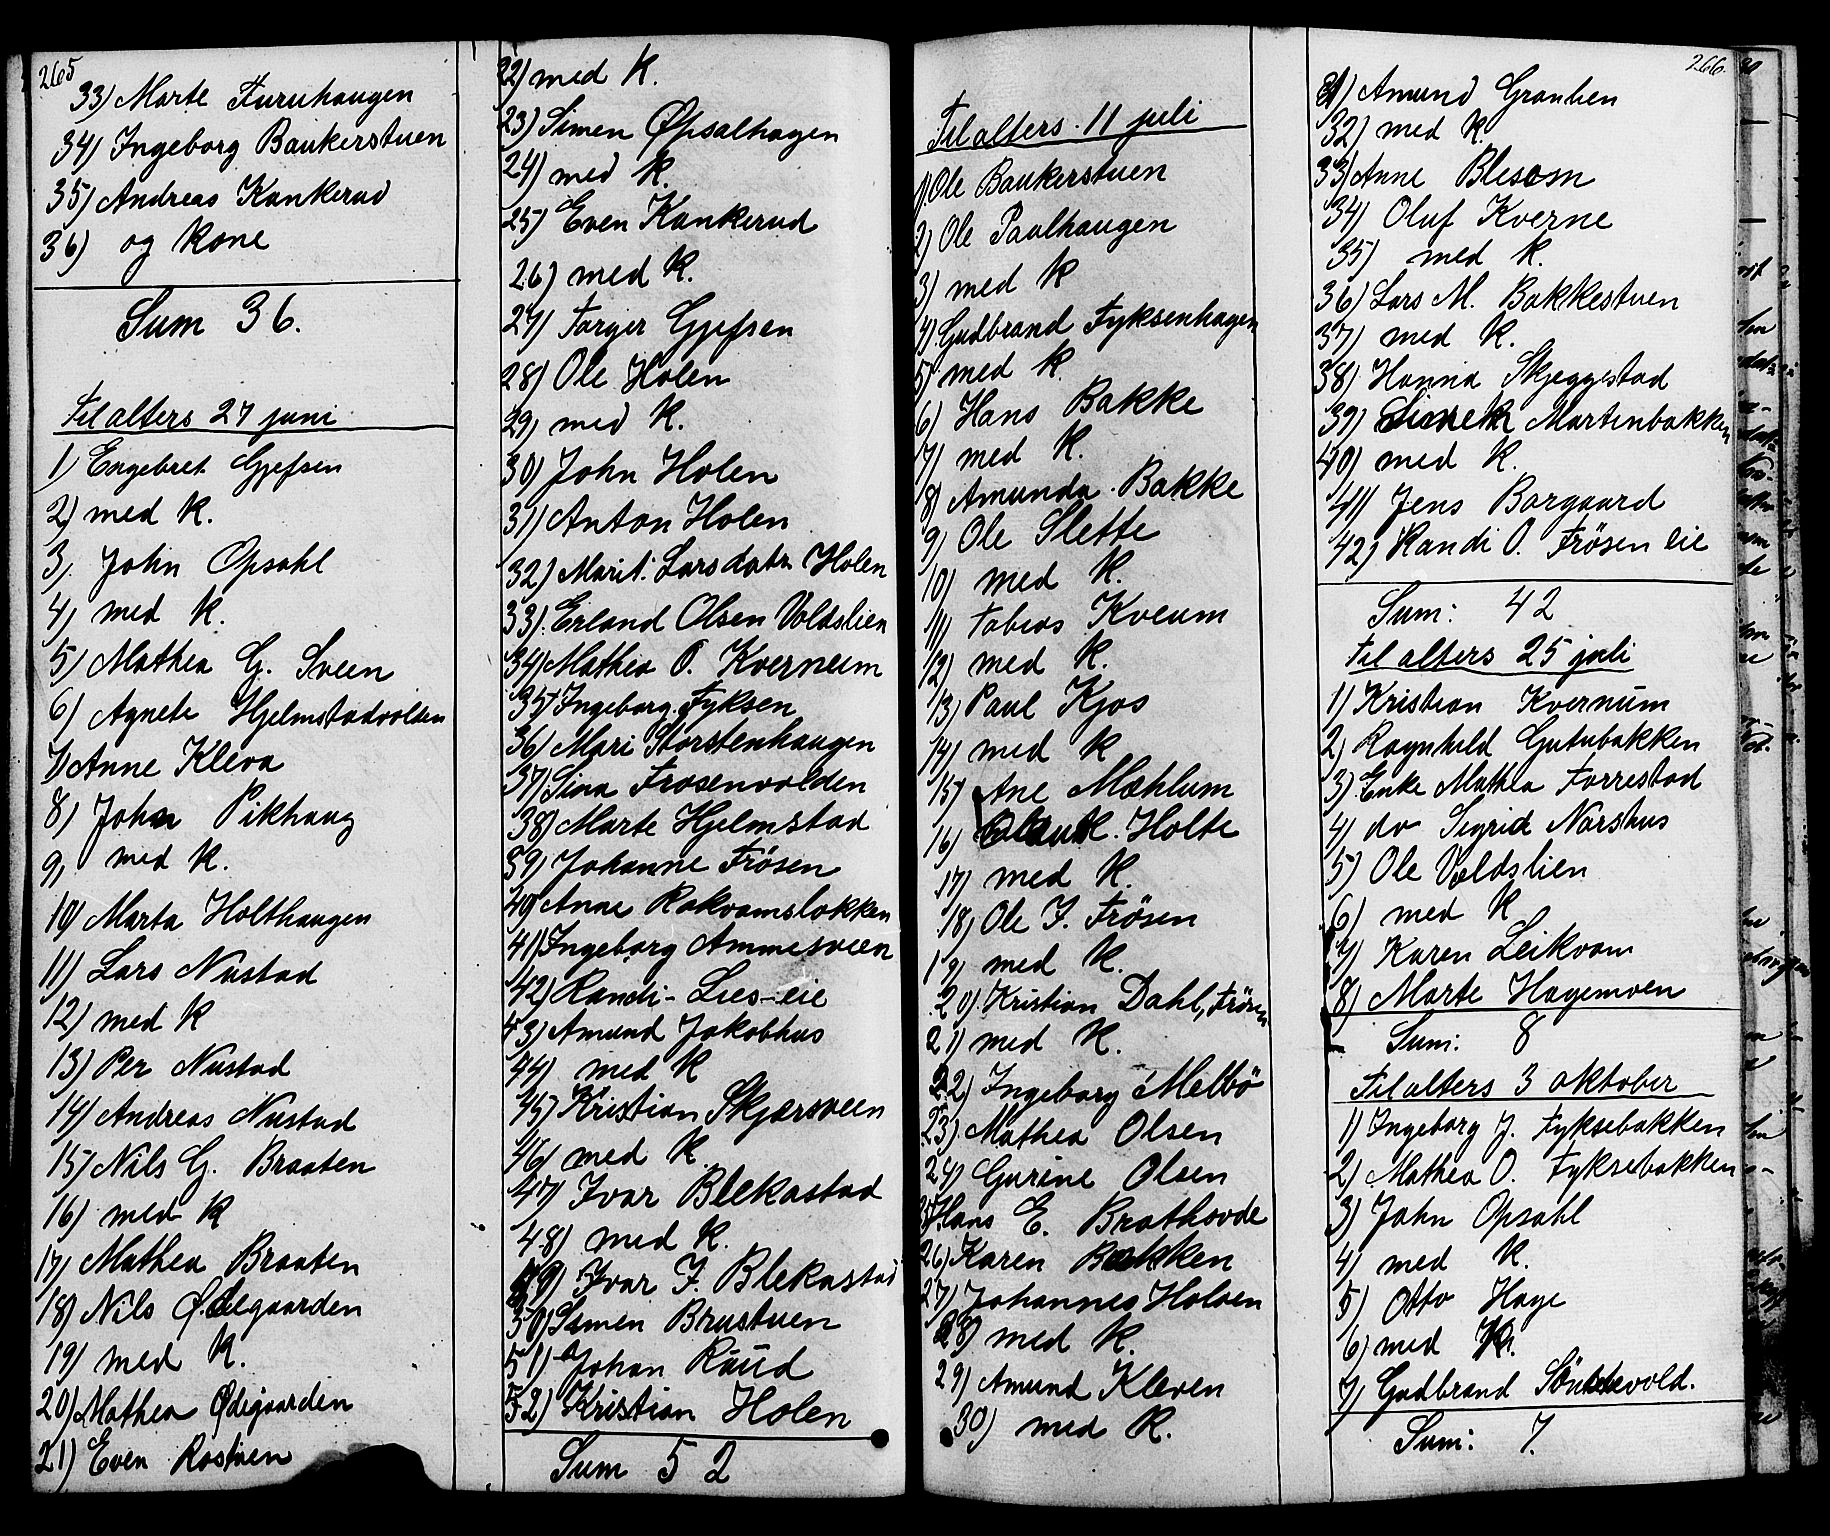 265
33) Marte Furuhaugen
34) Ingeborg Baukerstuen
35) Andreas Kankerud
36) og kone
Sum 36.
Til alters 27 juni
1) Engebret Gjefsen
2) med k.
3. John Opsahl
4) med k.
5) Mathea G. Sveen
6) Agnete Hjelmstadvolden
7) Anne Kleva
8) John Pikhaug
9) med k.
10) Marta Holthaugen
11) Lars Nustad
12) med k
13) Per Nustad
14) Andreas Nustad
15) Nils G. Braaten
16) med k
17) Mathea Braaten
18) Nils Ødegaarden
19) med k.
20) Mathea Ødegaarden
21) Even Rostuen
22) med k.
23) Simen Øpsalhagen
24) med k.
25) Even Kankerud
26) med k.
27) Torger Gjefsen
28) Ole Holen
29) med k.
30) John Holen
31) Anton Holen
32) Marit Larsdatr Holen
33) Erland Olsen Voldslien
34) Mathea O. Kvernum
35) Ingeborg Fyksen
36) Mari Storstenhaugen
37) Sina Frosenvolden
38) Marte Hjelmstad
39) Johanne Frösen
40) Anne Rokvamslokken
41) Ingeborg Ammesveen
42) Randi - Lies-eie
43) Amund Jakobhus
44) med k
45) Kristian Skjærsveen
46) med k.
47) Ivar Blekastad
48) med k.
49) Ivar J. Blekastad
50) Simen Brustuen
51) Johan Ruud
52) Kristian Holen
Sum 52
Til alters 11 juli
1) Ole Baukerstuen
2) Ole Paulhaugen
3) med k
4) Gudbrand Fyksenhagen
5) med k
6) Hans Bakke
7) med k.
8) Amunda Bakke
9) Ole Slette
10) med k.
11) Tobias Kveum
12) med k.
13) Paul Kjos
14) med k
15) Ane Mæhlum
16) Holte
17) med k.
18) Ole J. Frösen
19) med k.
20) Kristian Dahl, Frösen
21) med k.
22) Ingeborg Melbö
23) Mathea Olsen
24) Gurine Olsen
25) Hans E. Brathovde
26) Karen Bakken
27) Johannes Holoen
28) med k.
29) Amund Kleven
30) med k.
266.
31) Amund Granlien
32) med k.
33) Anne Blesom
34) Oluf Kverne
35) med k.
36) Lars M. Bakkestuen
37) med k.
38) Hanna Skjeggestad
39) Martinbakken
40) med k.
41) Jens Borgaard
42) Randi O. Frösen eie
Sum: 42
Til alters 25 juli
1) Kristian Kvernum
2) Ragnhild Gutubakken
3) Enke Mathea Forrestad
4) do Sigrid Norshus
5) Ole Voldslien
6) med k
7) Karen Leikvam
8) Marte Hagemoen
Sum: 8
Til alters 3 oktober
1) Ingeborg J. Fyksebakken
2) Mathea O. Fyksebakken
3) John Opsahl
4) med k.
5) Otto Hage
6) med k.
7) Gudbrand
Sum: 7.